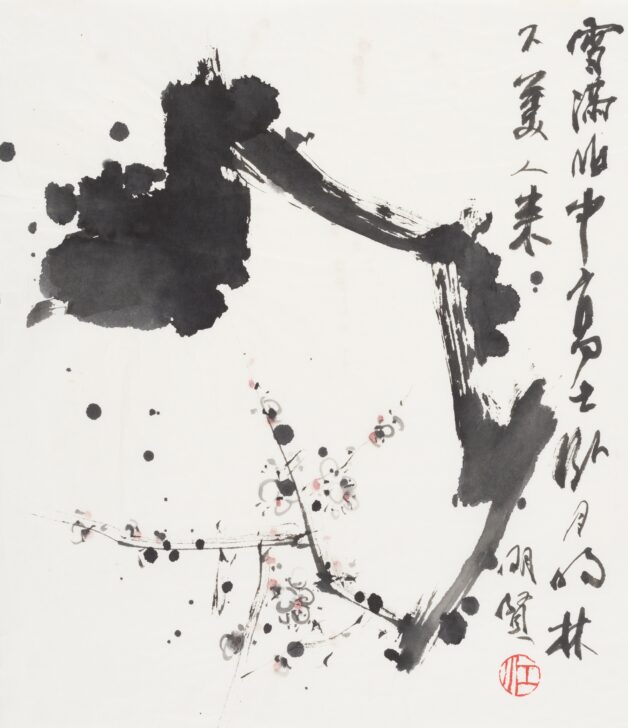 雪滿山中高士臥月明林
下美人来
明賢
江